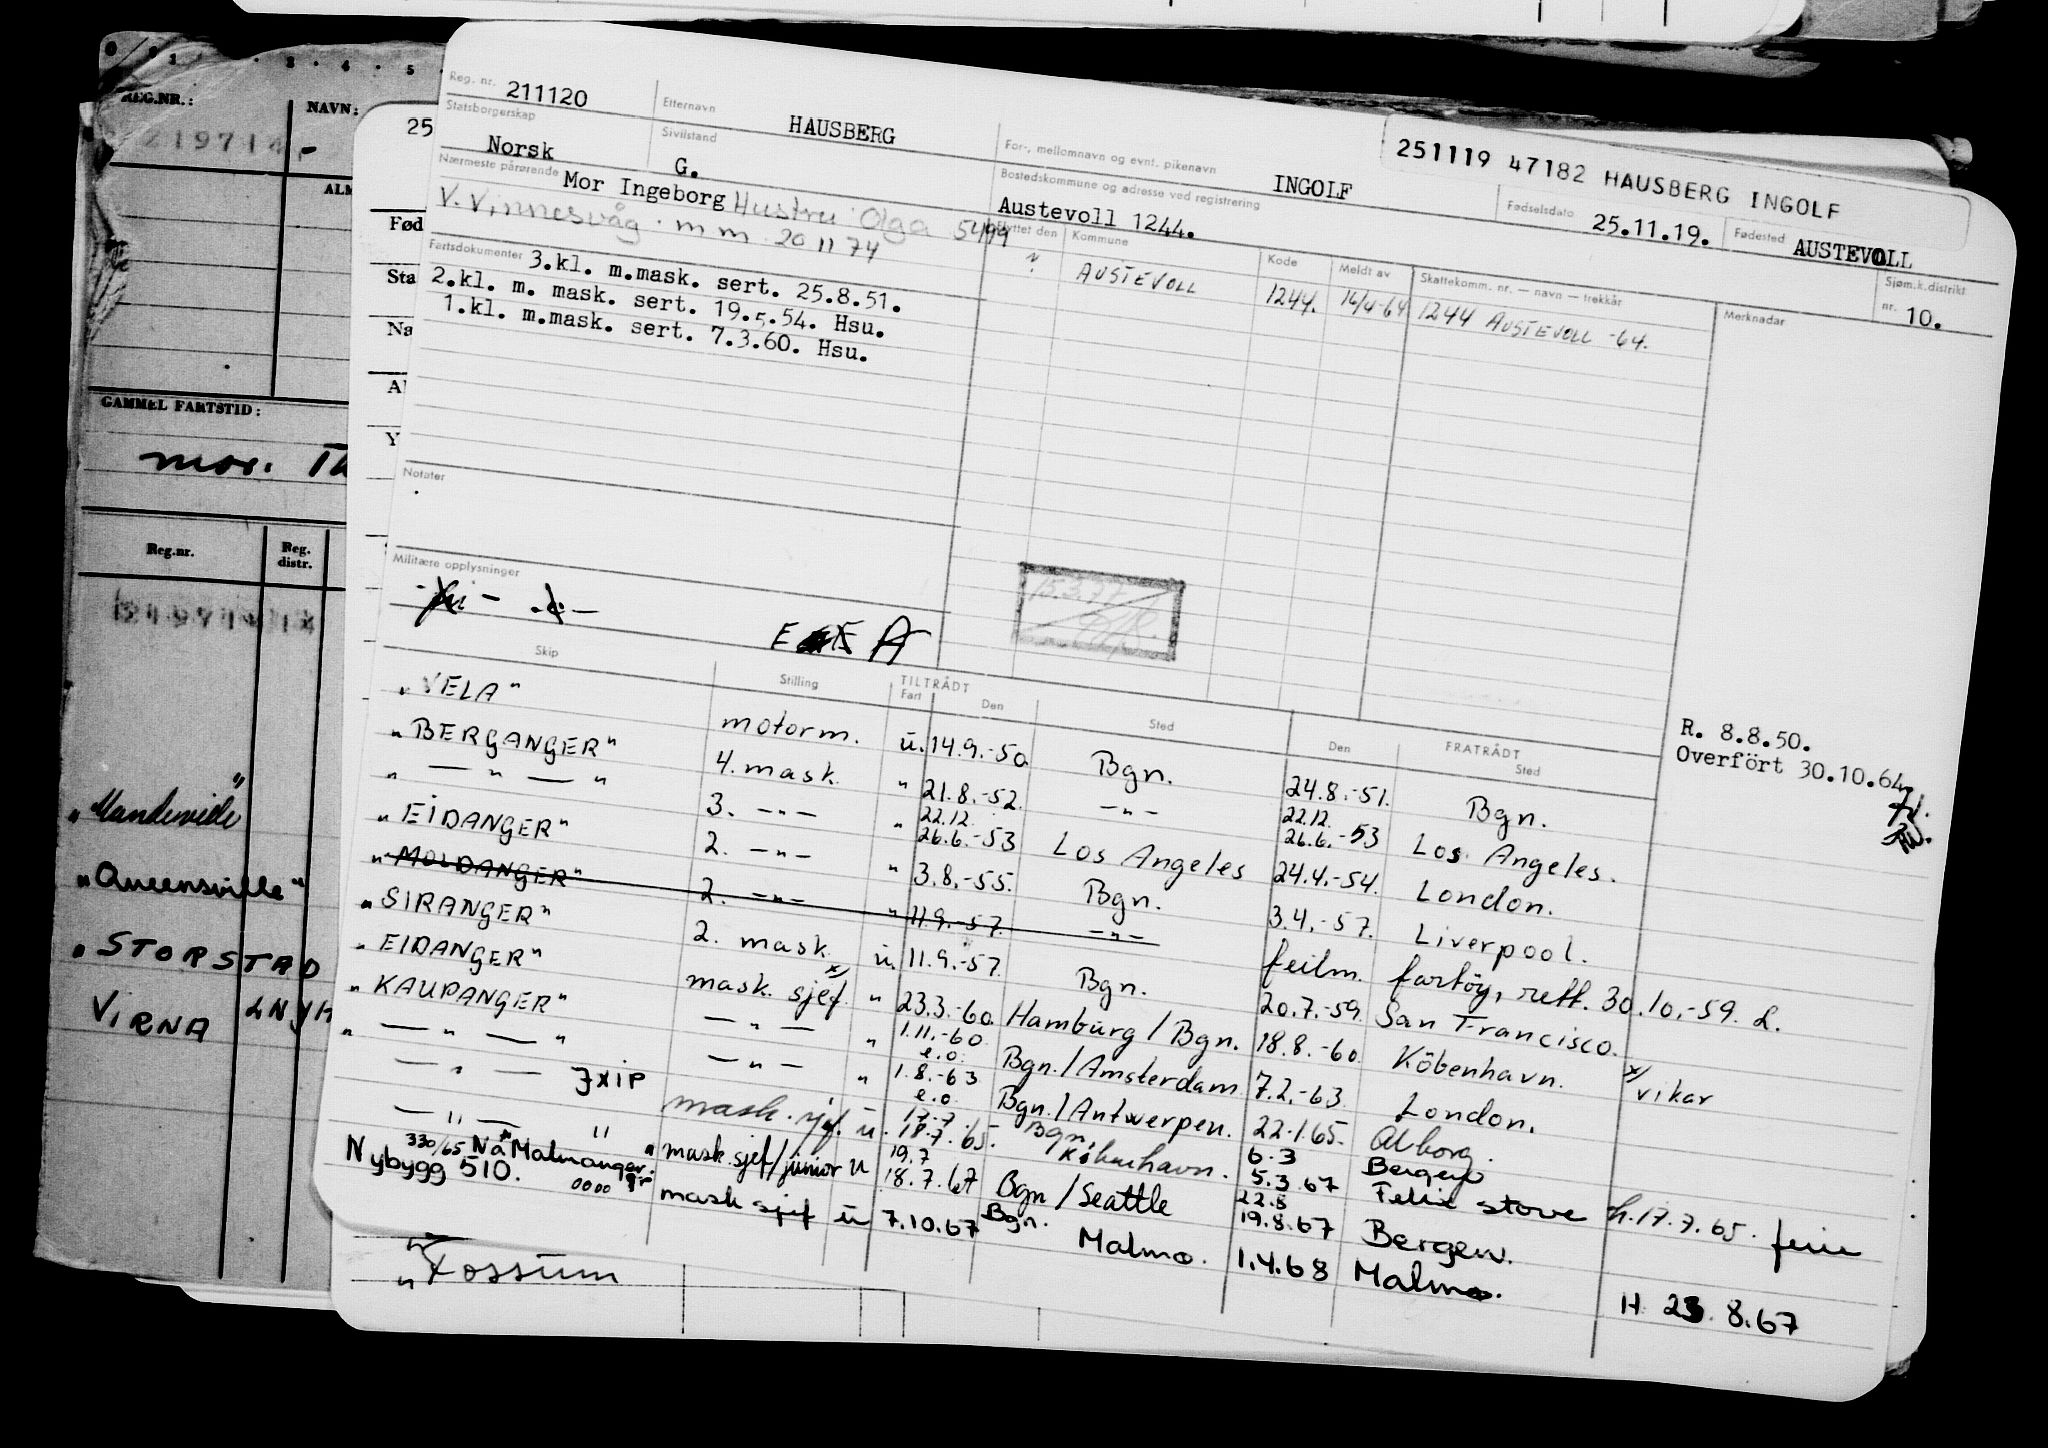 Reg. nr. 211120 Etternavn HAUSBERG For-, mellomnavn og evnt. pikenavn INGOLF
251119 47182 HAUSBERG INGOLF
Statsborgerskap Norsk Sivilstand G. Bostedskommune og adresse ved registrering Austevoll 1244. Fødselsdato 25.11.19. Fødested AUSTEVOLL
Nærmeste pårørende Mor Ingeborg Hustru Olga 5499
V. Vinnesvåg. mm 20 11 74
Flyttet den Kommune Kode Meldt av Skattekomm. nr. — navn — trekkår Merknader Sjøm.k.distrikt nr. 10.
AUSTEVOLL 1244. 1244 AUSTEVOLL -64.
Fartsdokumenter 3.kl. m.mask. sert. 25.8.51.
2.kl. m. mask. sert. 19.5.54. Hsu.
1.kl. m.mask. sert. 7.3.60. Hsu.
Notater
Militære opplysninger
E A
15.3.77
R. 8.8.50.
Overfört 30.10.64
Skip Stilling TILTRÅDT Fart Den Sted Den FRATRÅDT Sted
"VELA" motorm. u. 14.9.-50 Bgn. 24.8.-51. Bgn.
"BERGANGER" 4. mask. " 21.8.-52. —"— 22.12. Los Angeles.
" — " — " 3. —"— " 22.12. 26.6.-53 Los Angeles 26.6.-53 24.4.-54. London.
"EIDANGER" 2. —"— " 3.8.-55. Bgn. 3.4.-57. Liverpool.
"MOLDANGER" 2. —"— " 11.9.-57. —"— feilm. fartöy, rett. 30.10.-59. L.
"SIRANGER" 2. mask. u. 11.9.-57. Bgn. 20.7.-59. San Francisco.
"EIDANGER" mask. sjef x) " 23.3.-60. Hamburg / Bgn. 18.8.-60. Köbenhavn. x) vikar
"KAUPANGER" — " — " 1.11.-60. e.o. Bgn. / Amsterdam 7.2.-63. London.
" — " — " — " — " 1.8.-63 e.o. Bgn. / Antwerpen. 22.1.65. Alborg.
— " — JXIP mask. sjef. u. 17.7. 18.7.65. Bgn, København. 6.3 5.3.67 Bergen h.17.7.65. ferie
— " — " " mask. sjef/junior u 19.7 18.7.67 Bgn / Seattle 22.8 19.8.67 Bergen.
330/65 Nå "Malmanger"
Nybygg 510. mask sjef u 7.10.67 Bgn. Malmø. 1.4.68 Malmø.
H 23.8.67
"Fossum
REG.NR.: NAVN:
219714
GAMMEL FARTSTID:
mor.
Reg.nr. Reg. distr.
"Mandeville"
"Queensville"
"STORSTAD
VIRNA LNJH
25
Fød
Sta
Na
Y